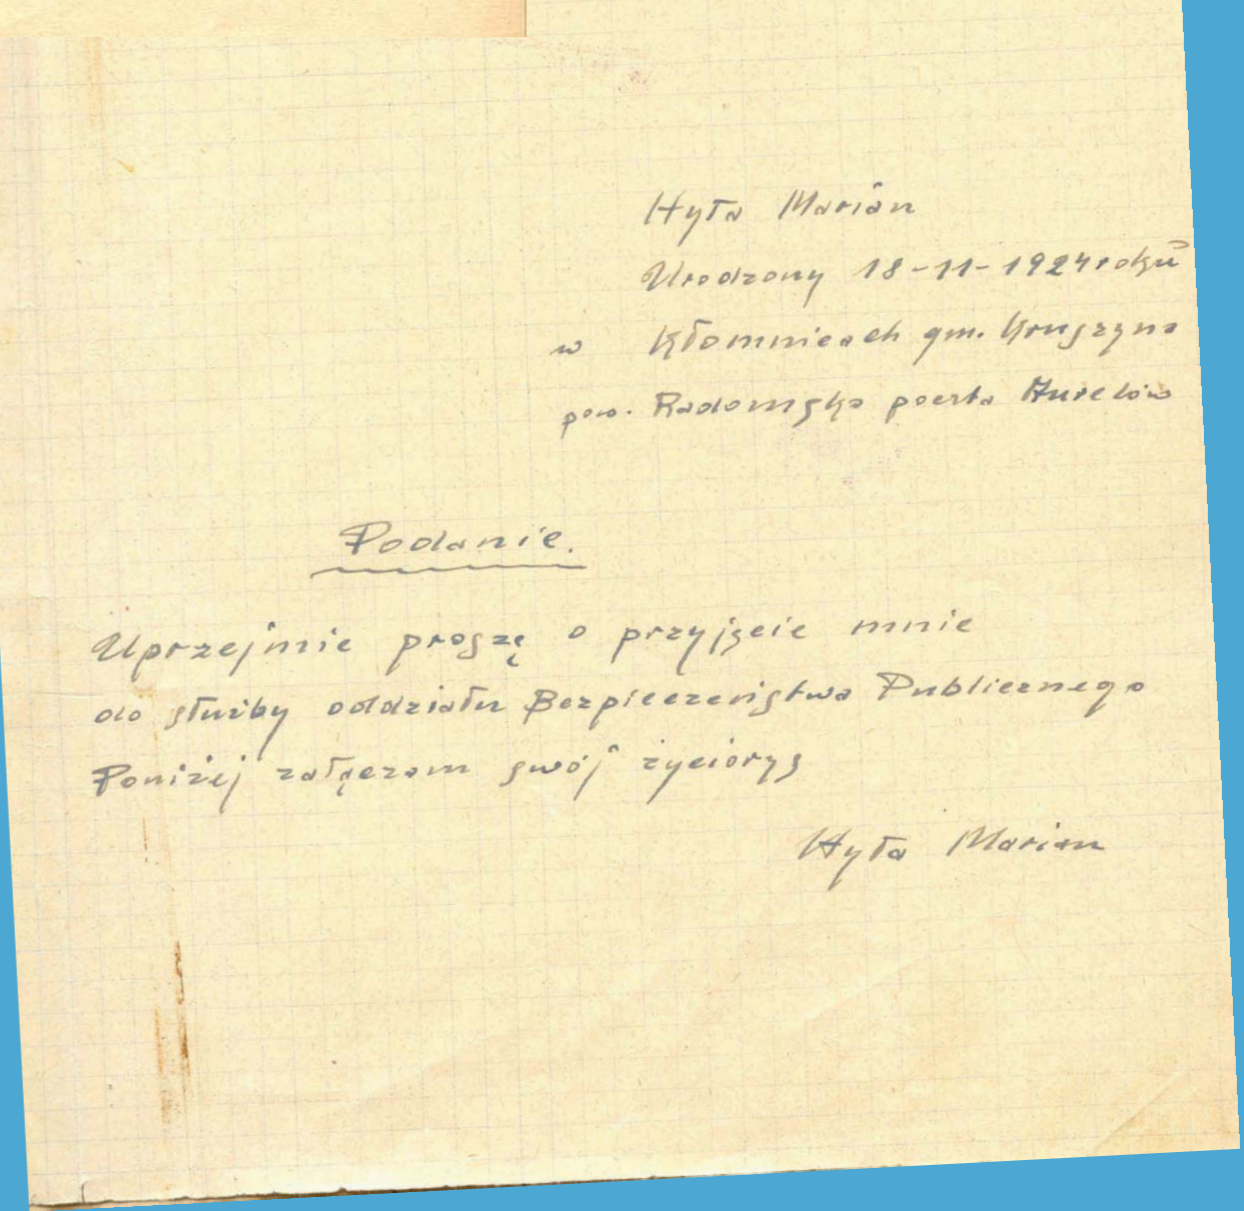 Hyła Marian
Urodzony 18-11-1924 roku
w Kłomnicach gm. Kruszyna
pow. Radomsko poczta Aurelów
Podanie.
Uprzejmie proszę o przyjęcie mnie
do służby oddziału Bezpieczeństwa Publicznego
Poniżej załączam swój życiorys
Hyła Marian